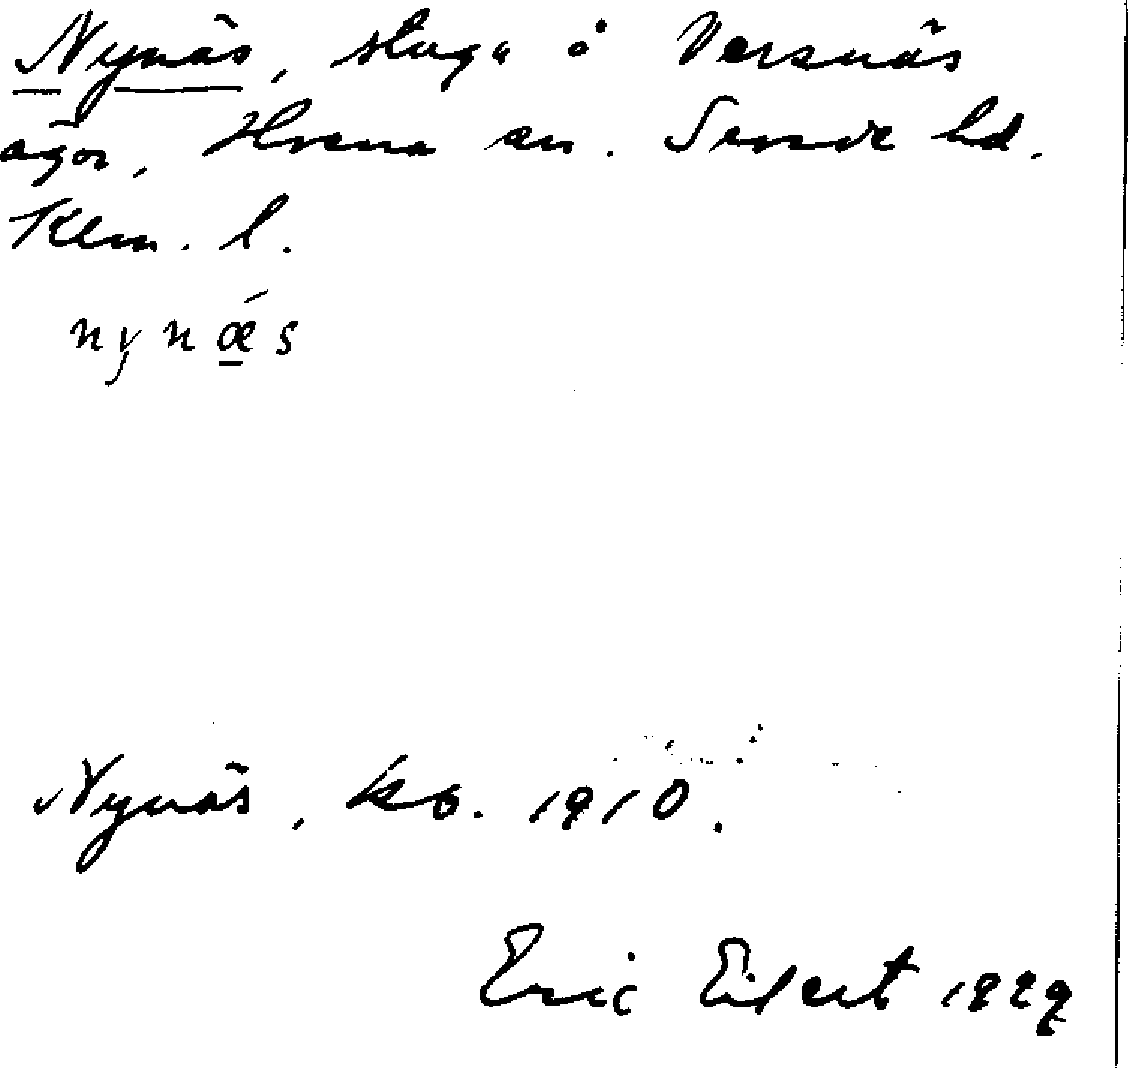 Nynäs, stuga å Versnäs
ägor, Hvena sn. Sevede hd.
Klm. l.
nynǽs
Nynäs, kb. 1910.
Eric Eilert 1929